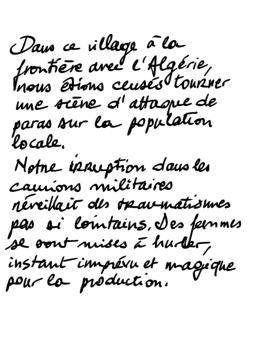 Dans ce village à la
frontière avec l'Algérie,
nous étions censés tourner
une scène d'attaque de
paras sur la population
locale.
Notre irruption dans les
camions militaires
réveillait des traumatismes
pas si lointains. Des femmes
se sont mises à hurler,
instant imprévu et magique
pour la production.